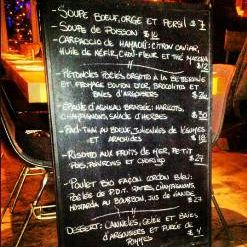 - SOUPE BOEUF, ORGE ET PERSIL $7
- SOUPE DE POISSON $10
- CARPACCIO DE HAMACHI: CITRON CAVIAR,
HUILE DE KÉFIR, CHOU-FLEUR ET THÉ MATCHA
$12
- PÉTONCLES POÊLÉS ORZOTTO À LA BETTERAVE
ET FROMAGE BOUTON D'OR, BROCOLITOS ET
BAIES D'ARGOUSIERS
- ÉPAULE D'AGNEAU BRAISÉE: HARICOTS,
CHAMPIGNONS, SALADE D'HERBES $30
- PAD-THAI AU BOEUF, JULIENNES DE LÉGUMES
ET ARACHIDES $18
- RISOTTO AUX FRUITS DE MER, PETIT
POIS, POIVRONS ET CHORIZO $27
- POULET BIO FAÇON CORDON BLEU:
POÊLÉE DE P.D.T. CHAMPIGNONS,
AU BOURBON, JUS DE VIANDE
$27
DESSERT: CANNELÉS, GELÉE ET BAIES
D'ARGOUSIERS ET PURÉE DE
POMMES $4